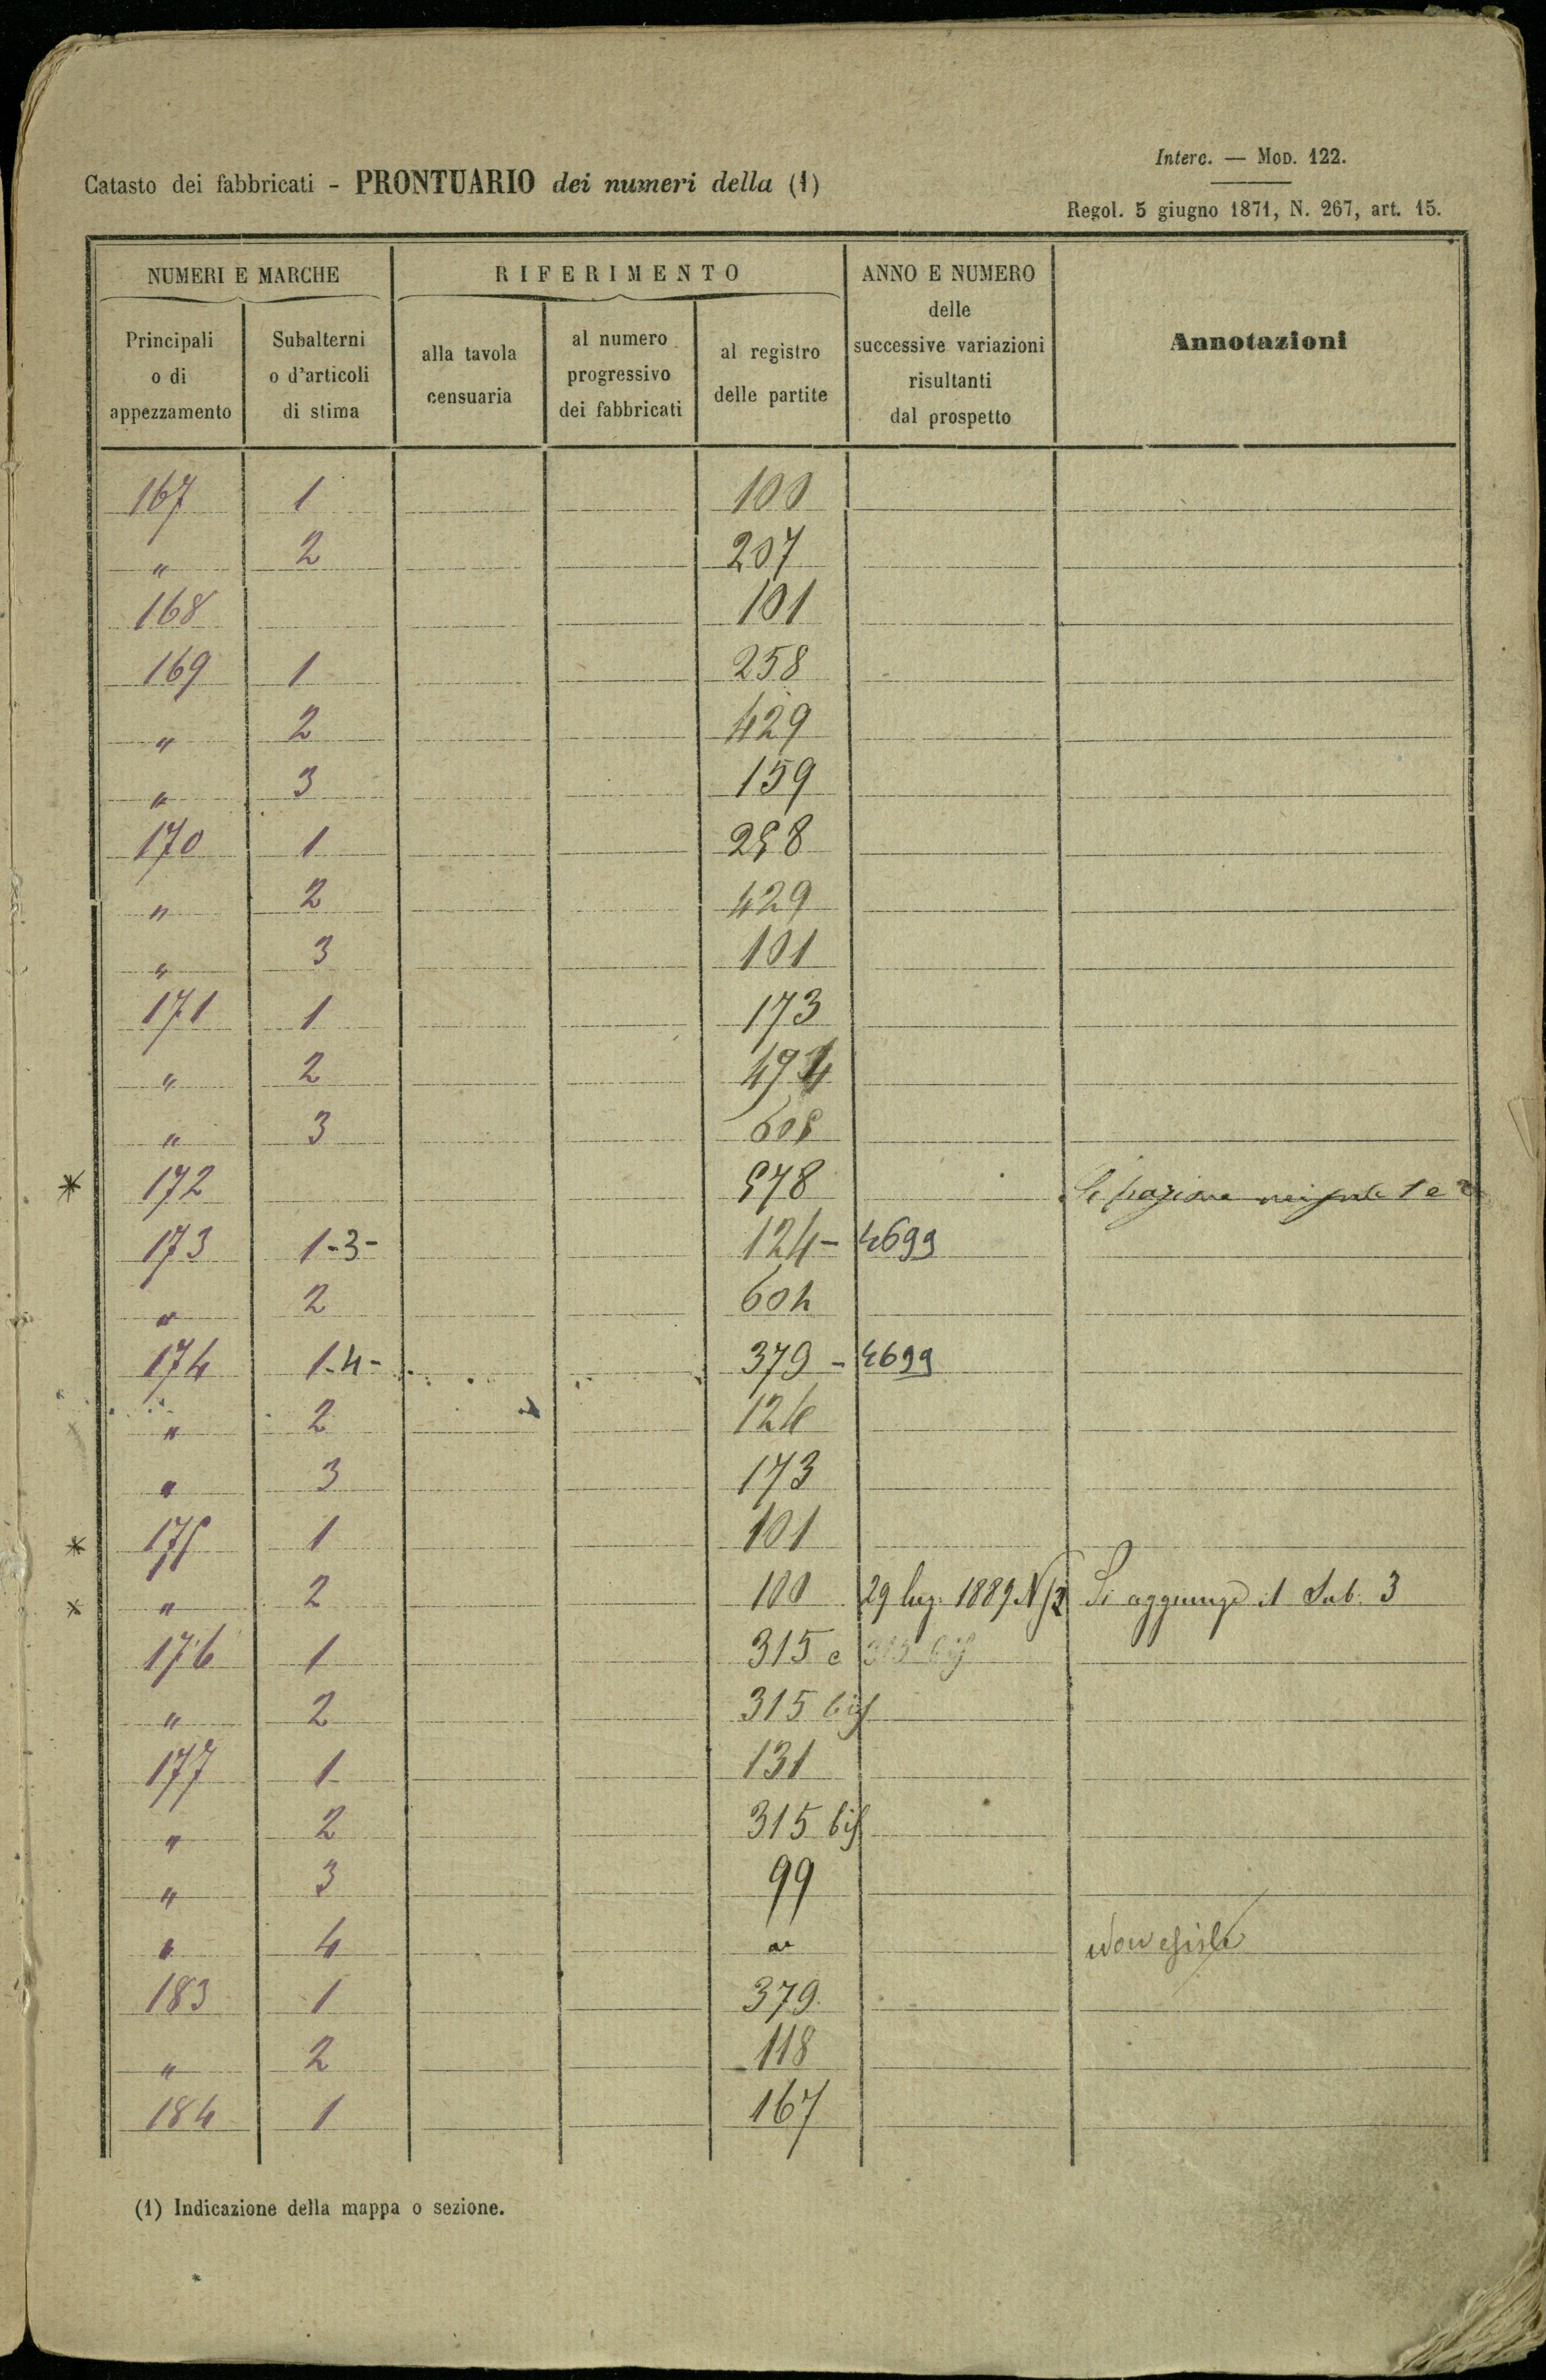 Interc. — Mod. 122.
Catasto dei fabbricati - PRONTUARIO dei numeri della (1)
Regol. 5 giugno 1871, N. 267, art. 15.
NUMERI E MARCHE RIFERIMENTO ANNO E NUMERO delle successive variazioni risultanti dal prospetto Annotazioni
Principali o di appezzamento Subalterni o d'articoli di stima alla tavola censuaria al numero progressivo dei fabbricati al registro delle partite
167 1 100
" 2 207
168 101
169 1 258
" 2 429
" 3 159
170 1 258
" 2 429
" 3 101
171 1 173
" 2 494
" 3 605
* 172 578 Si fraziona 1 e 2
173 1-3- 124- 4699
" 2 604
174 1-4- 379 - 4699
" 2 124
" 3 173
* 175 1 101
* " 2 100 29 lug. 1889 N 52 Si aggiunge il Sub. 3
176 1 315 e 315 bis
" 2 315 bis
177 1 131
" 2 315 bis
" 3 99
" 4 " Non esiste
183 1 379
" 2 118
184 1 167
(1) Indicazione della mappa o sezione.